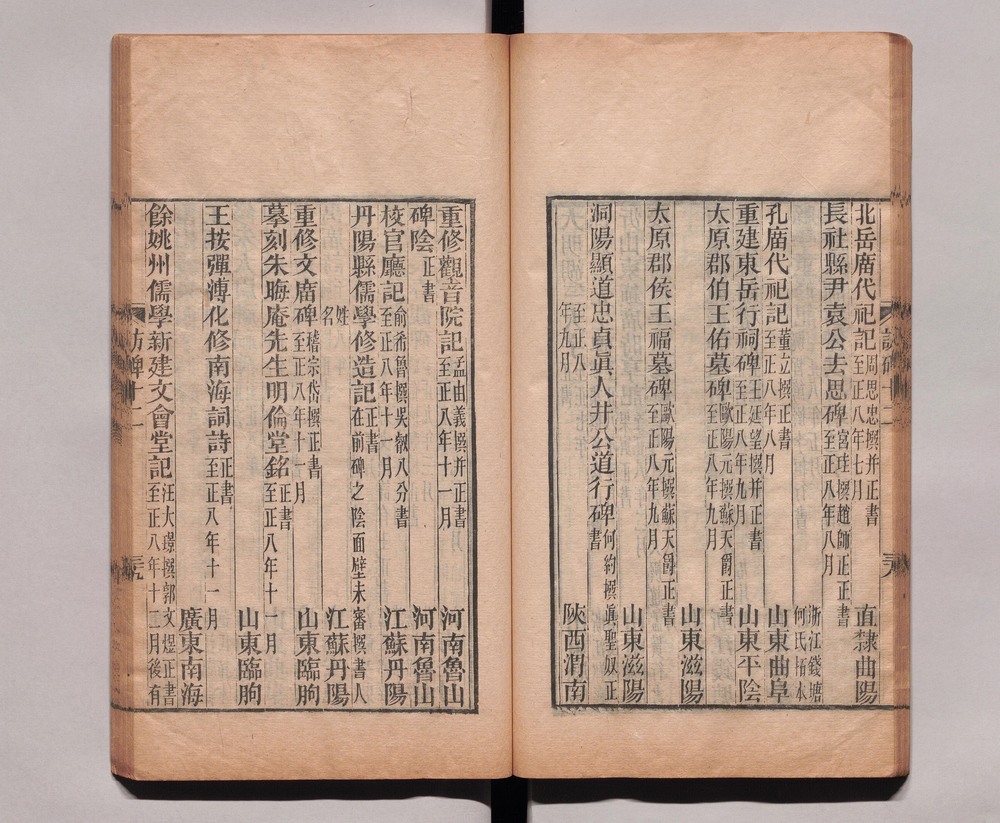 北岳廟代祀記周思忠撰并正書至正八年七月 直隸曲陽
長社縣尹袁公去思碑宮珪撰趙師正正書至正八年八月 浙江錢塘何氏拓本
孔廟代祀記董立撰正書至正八年八月 山東曲阜
重建東岳行祠碑王延望撰并正書至正八年九月 山東平陰
太原郡伯王佑墓碑歐陽元撰蘇天爵正書至正八年九月 山東滋陽
太原郡侯王福墓碑歐陽元撰蘇天爵正書至正八年九月 山東滋陽
洞陽顯道忠貞眞人井公道行碑何約撰眞聖奴正書
至正八年九月 陝西渭南
重修觀音院記孟由義撰并正書至正八年十一月 河南魯山
碑陰正書 河南魯山
校官廳記俞希魯撰吳叡八分書至正八年十一月 江蘇丹陽
丹陽縣儒學修造記正書在前碑之陰面壁未審撰書人
姓名 江蘇丹陽
重修文廟碑嵇宗岱撰正書至正八年十一月 山東臨朐
摹刻朱晦庵先生明倫堂銘正書至正八年十一月
山東臨朐
王按彈溥化修南海詞詩正書至正八年十一月
廣東南海
餘姚州儒學新建文會堂記汪大璟撰郭文煜正書至正八年十二月後有
訪碑十二
三十九